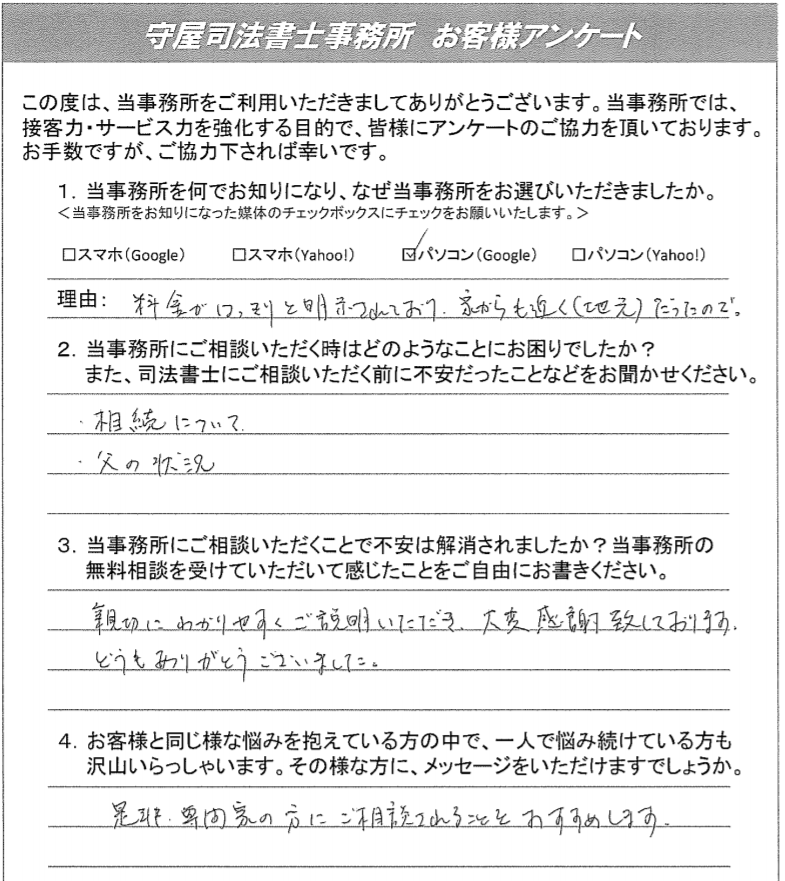 守屋司法書士事務所 お客様アンケート
この度は、当事務所をご利用いただきましてありがとうございます。当事務所では、
接客力・サービス力を強化する目的で、皆様にアンケートのご協力を頂いております。
お手数ですが、ご協力下されば幸いです。
1. 当事務所を何でお知りになり、なぜ当事務所をお選びいただきましたか。
＜当事務所をお知りになった媒体のチェックボックスにチェックをお願いいたします。＞
□スマホ(Google) □スマホ(Yahoo!) ☑パソコン(Google) □パソコン(Yahoo!)
理由: 料金がはっきりと明示されており、家からも近く(地元)だったので。
2. 当事務所にご相談いただく時はどのようなことにお困りでしたか？
また、司法書士にご相談いただく前に不安だったことなどをお聞かせください。
・相続について
・父の状況
3. 当事務所にご相談いただくことで不安は解消されましたか？当事務所の
無料相談を受けていただいて感じたことをご自由にお書きください。
親切にわかりやすくご説明いただき、大変感謝致しております。
どうもありがとうございました。
4. お客様と同じ様な悩みを抱えている方の中で、一人で悩み続けている方も
沢山いらっしゃいます。その様な方に、メッセージをいただけますでしょうか。
是非、専門家の方にご相談されることをおすすめします。